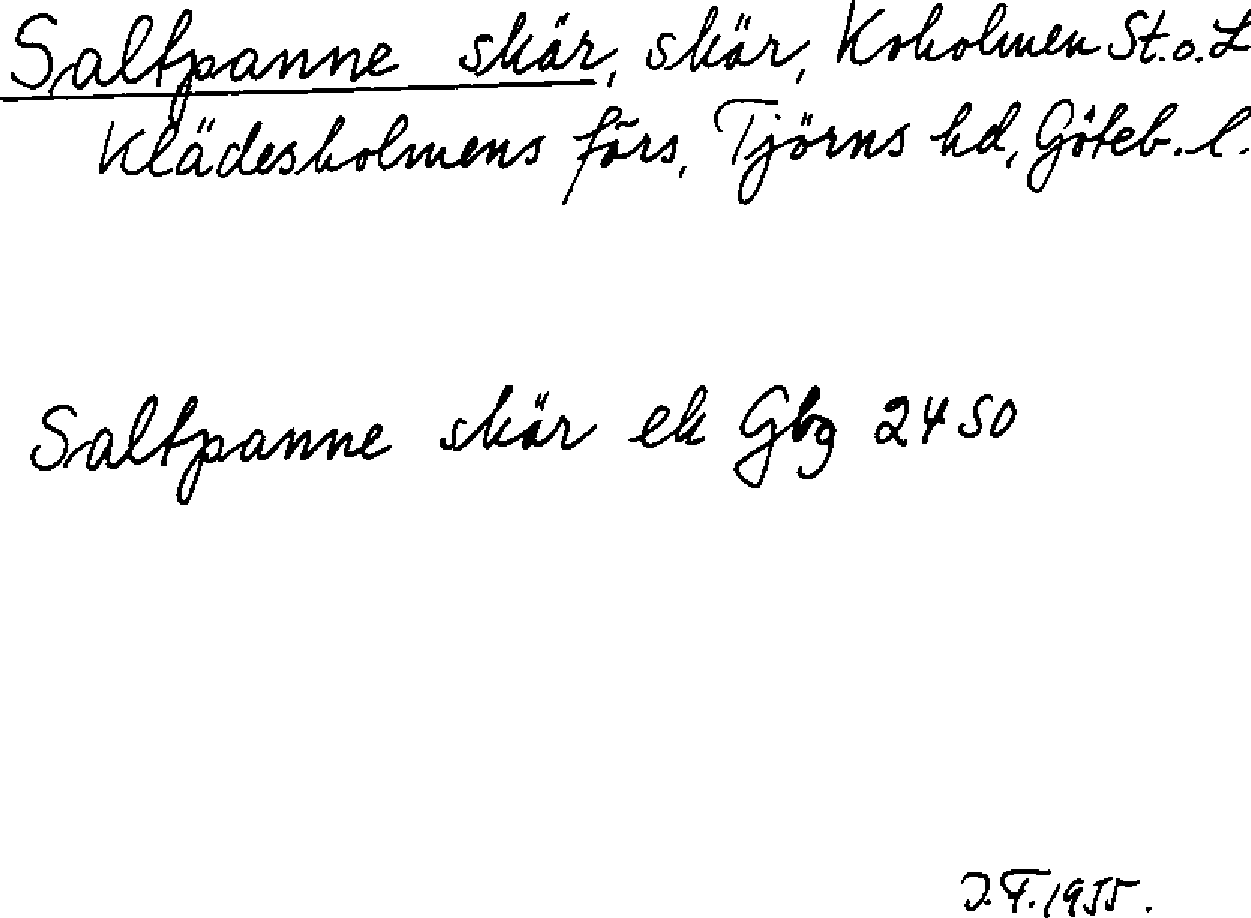 Saltpanne skär, skär, Koholmen St. o. L
Klädesholmens förs, Tjörns hd, Göteb. l.
Saltpanne skär ek Gbg 2450
J.F. 1955.